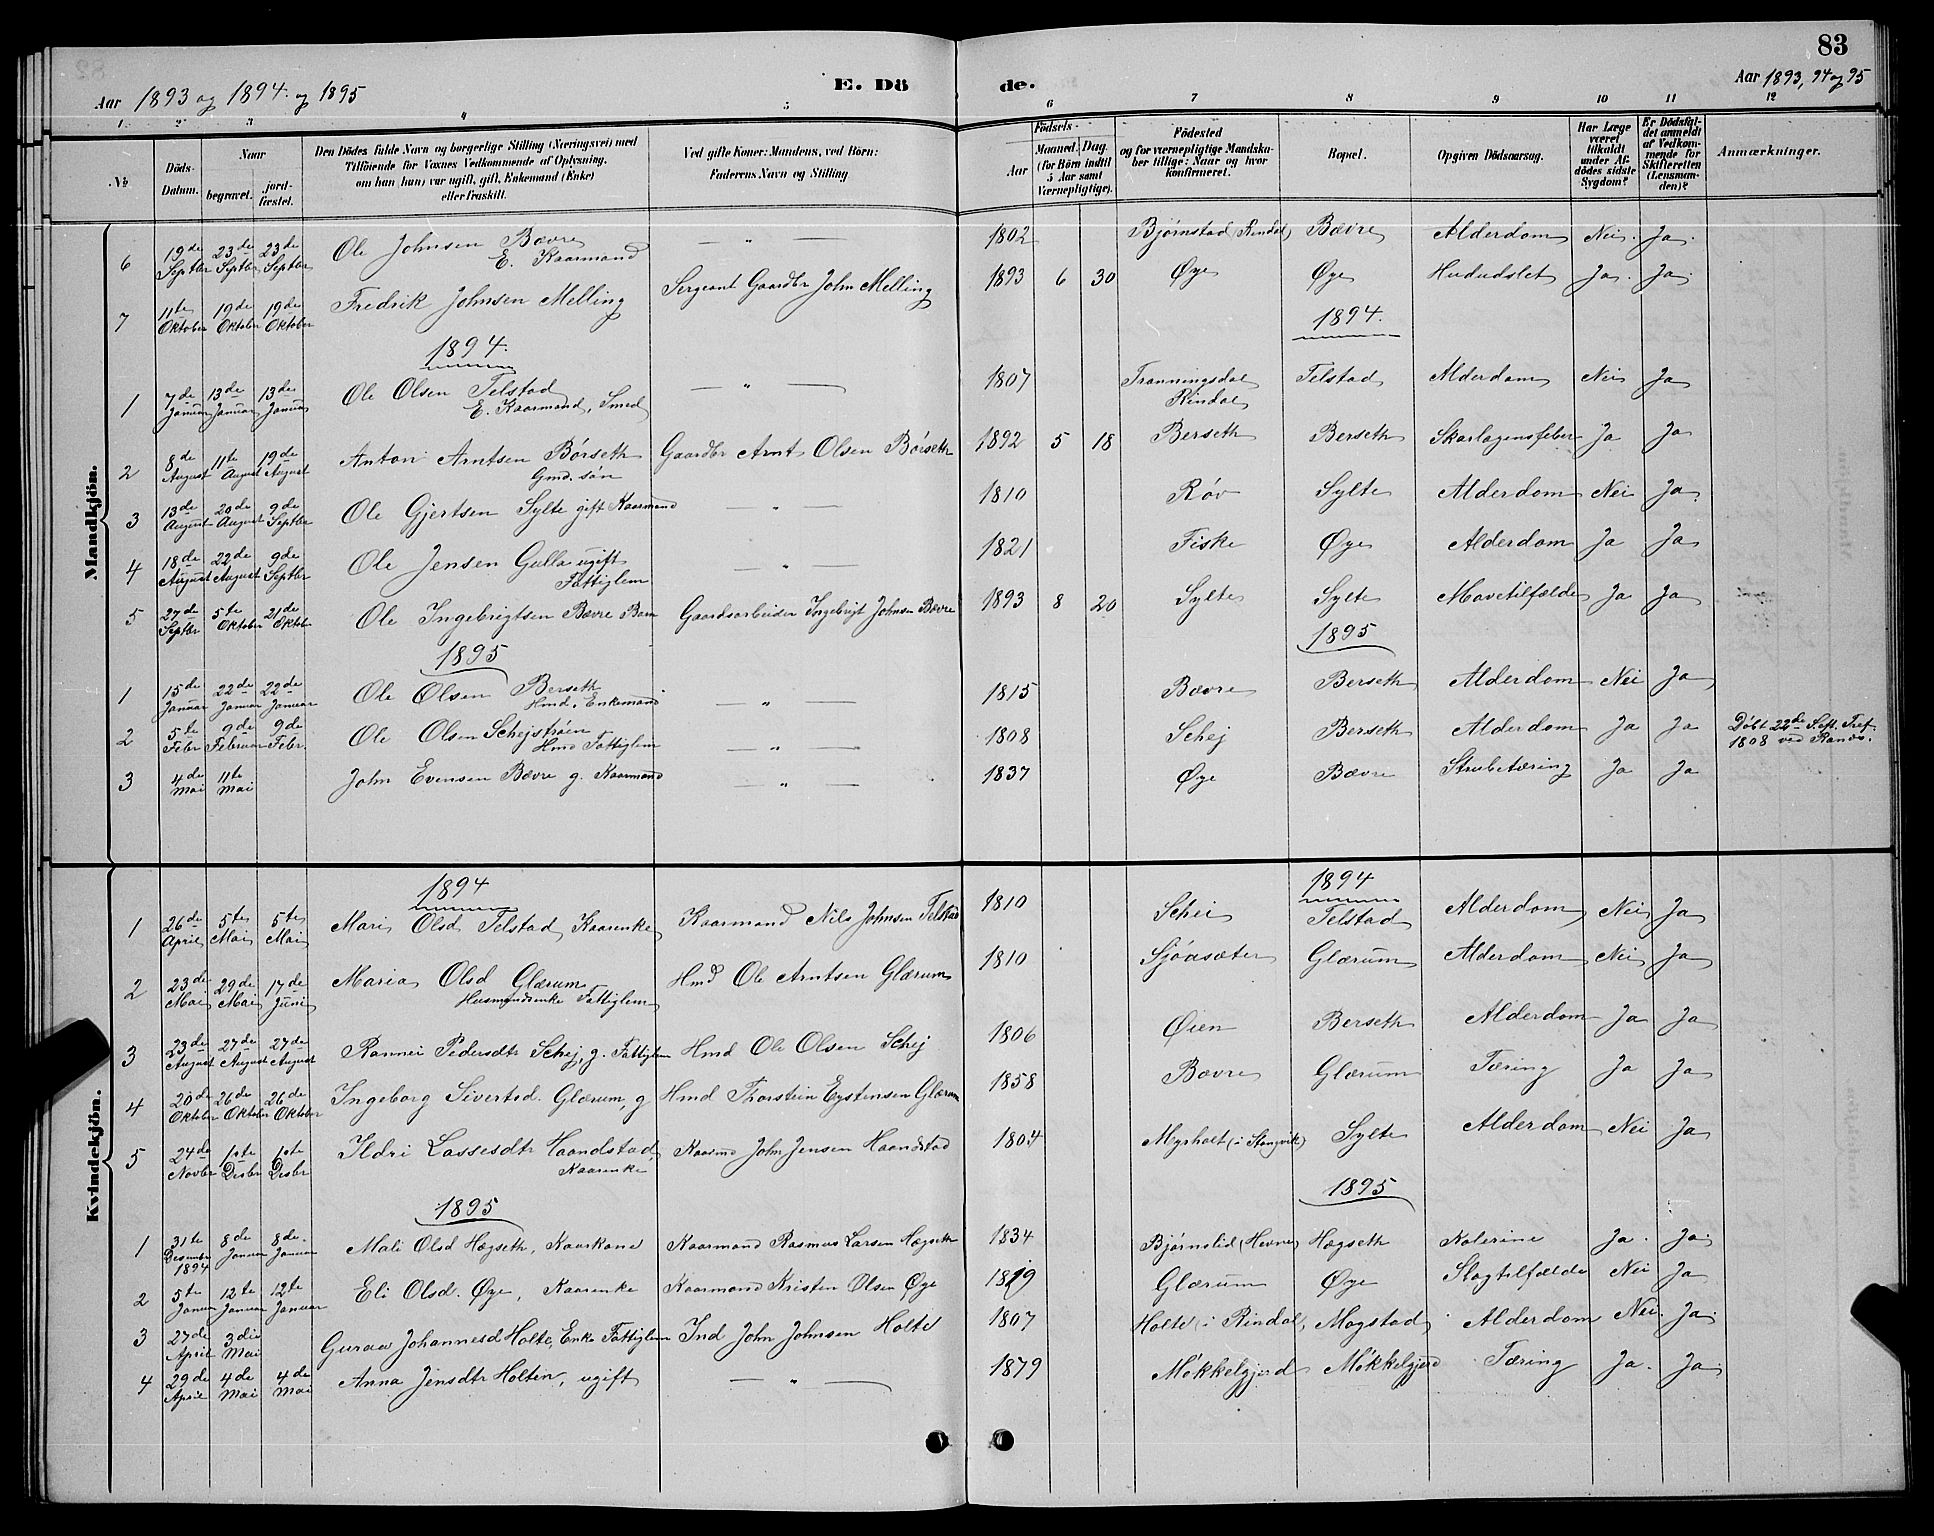 83
Aar 1893 og 1894. og 1895
E. Dö de.
Aar 1893, 94 og 95
1. 2 3 4 5 6 7 8 9 10 11 12
№
Döds-
Datum.
Naar
begravet.
jord-
fæstet.
Den Dödes fulde Navn og borgerlige Stilling (Næringsvei) med
Tilföiende for Voxnes Vedkommende af Oplysning,
om han (hun) var ugift, gift, Enkemand (Enke)
eller fraskilt.
Ved gifte Koner: Mandens, ved Börn:
Faderens Navn og Stilling
Födsels-
Aar
Maaned. Dag.
(for Börn indtil
5 Aar samt
Værnepligtige).
Födested
og for værnepligtige Mandska-
ber tillige: Naar og hvor
konfirmeret.
Bopæl.
Opgiven Dödsaarsag.
Har Læge
været
tilkaldt
under Af-
dödes sidste
Sygdom?
Er Dödsfal-
det anmeldt
af Vedkom-
mende for
Skifteretten
(Lensman-
den)?
Anmærkninger.
Mandkjön.
6 19de Septbr 23de Septbr 23de Septbr Ole Johnsen Bævre E. Kaarmand — " — 1802 Bjørnstad (Rindal) Bævre Alderdom Nei. Ja.
7 11te Oktober 19de Oktober 19de Oktober Fredrik Johnsen Melling Sergeant Gaardbr John Melling 1893 6 30 Øye Øye Hududslet Ja. Ja.
1894. 1894.
1 7de Januar 13de Januar 13de Januar Ole Olsen Telstad E. Kaarmand, Smed — " — 1807 Tranningsdal Rindal Telstad Alderdom Nei Ja
2 8de August 11te August 19de August Anton Arntsen Børseth Gmd. søn Gaardbr Arnt Olsen Børseth 1892 5 18 Berseth Berseth Skarlagensfeber Ja Ja
3 13de August 20de August 9de Septbr Ole Gjertsen Sylte gift Kaarmand — " — 1810 Røv Sylte Alderdom Nei Ja
4 18de August 22de August 9de Septbr Ole Jensen Gulla ugift Fattiglem — " — 1821 Fiske Øye Alderdom Ja Ja
5 27de Septbr 5te Oktober 21de Oktobr Ole Ingebrigtsen Bævre Barn Gaardsarbeider Ingebrigt Johnsen Bævre 1893 8 20 Sylte Sylte Mavetilfælde Ja Ja
1895 1895
1 15de Januar 22de Januar 22de Januar Ole Olsen Berseth Hmd. Enkemand — " — 1815 Bævre Berseth Alderdom Nei Ja
2 5te Febr 9de Februar 9de Febr. Ole Olsen Schejstrøen Hmd Fattiglem — " — 1808 Schej Berseth Alderdom Ja Ja Døbt 22de Sept. Tref. 1808 ved Ranøs.
3 4de Mai 11te Mai John Evensen Bævre g. Kaarmand — " — 1837 Øye Bævre Strubetæring Ja Ja
Kvindekjön.
1894 1894
1 26de April 5te Mai 5te Mai Mari Olsd Telstad, Kaarenke Kaarmand Nils Johnsen Telstad 1810 Schei Telstad Alderdom Nei Ja
2 23de Mai 29de Mai 17de Juni Maria Olsd Glærum Husmandsenke Fattiglem Hmd Ole Arntsen Glærum 1810 Sjøasæter Glærum Alderdom Nei Ja
3 23de August 27de August 27de August Rannei Pedersdtr Schej, g. Fattiglem Hmd Ole Olsen Schej 1806 Øien Berseth Alderdom Ja Ja
4 20de Oktober 26de Oktober 26de Oktober Ingeborg Sivertsd. Glærum, g Hmd Thorstein Eystensen Glærum 1858 Bævre Glærum Tæring Ja Ja
5 24de Novbr 1ste Desbr 1ste Desbr Ildri Lassesdtr Haandstad, Kaarenke Kaarmd John Jensen Haandstad 1804 Myrholt (i Stangvik) Sylte Alderdom Nei Ja
1895 1895
1 31te Desember 1894 8de Januar 8de. Januar Mali Olsd Hægseth, Kaarkone Kaarmand Rasmus Larsen Hægseth 1834 Bjørnslid (Hevne) Hægseth Kolerine Ja. Ja.
2 5te Januar 12te Januar 12te Januar Eli Olsd. Øye, Kaarenke Kaarmand Kristen Olsen Øye 1819 Glærum Øye Slagtilfælde Nei Ja
3 27de April 3die Mai Guraa Johannesd Holte, Enke Fattiglem Ind John Johnsen Holte 1807 Holte (i Rindal) Mogstad Alderdom Nei. Ja.
4 29de April 4de Mai 4de Mai Anna Jensdtr Holten, ugift — " — 1879 Møkkelgjerd Møkkelgjerd Tæring Ja. Ja.